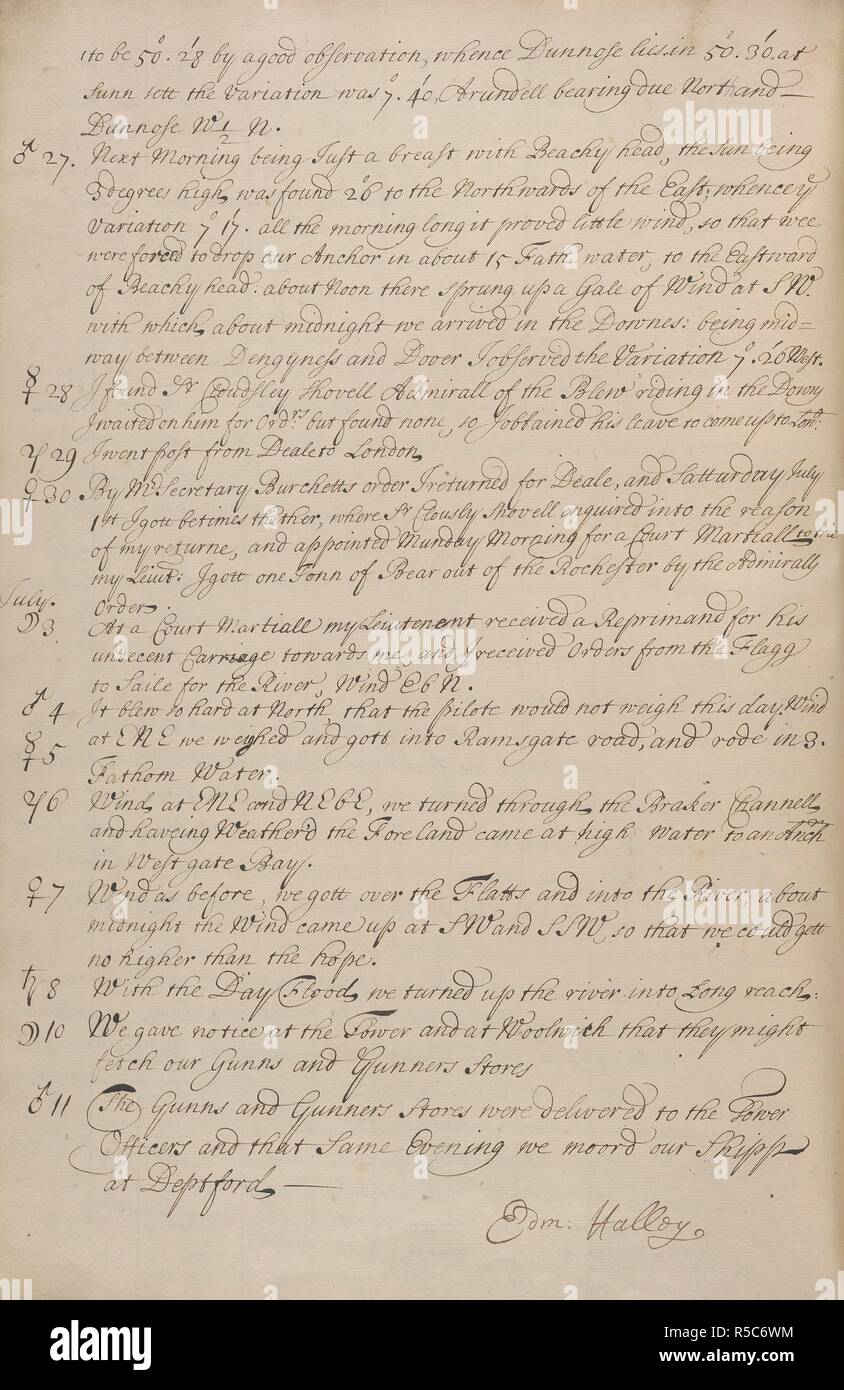 to be 50°. 28' by a good observation, whence Dunnose lies in 50°. 30'. at
sunn sett the Variation was 7°. 40', Arundell bearing due North and
Dunnose W 1/2 N.
♂ 27. Next Morning being Just a breast with Beachy head, the sun being
3 degrees high, was found 26° to the Northwards of the East; whence ye
Variation 7° 17'. all the morning long it proved little wind, so that wee
were forced to drop our Anchor in about 15 Fath: water, to the Eastward
of Beachy head. about Noon there sprung up a Gale of Wind at SW.
with which about midnight we arrived in the Downes: being mid=
way between Dengyness and Dover I observed the Variation 7°. 26' West.
☿ 28 I found Sr Cloudsley Shovell Admirall of the Blew riding in the Downs
I waited on him for Ordrs but found none, so I obtained his leave to come up to Lond:
♃ 29 I went post from Deale to London
♀ 30 By Mr Secretary Burchetts order I returned for Deale, and Satturday July
1st I gott betimes thither, where Sr Clously Shovell enquired into the reason
of my returne, and appointed Munday Morning for a Court Martiall to trie
my Lieut: I gott one Tonn of Bear out of the Rochester by the Admiralls
Order.
July.
☽ 3. At a Court Martiall my Leiutenent received a Reprimand for his
undecent Carriage towards me, and I received Orders from the Flagg
to Saile for the River, Wind EbN.
♂ 4 It blew so hard at North, that the pilote would not weigh this day. Wind
☿ 5 at ENE we weyhed and gott into Ramsgate road, and rode in 3.
Fathom Water.
♃ 6 Wind at ENE and NEbE, we turned through the Braker Channell
and haveing Weather'd the Foreland came at high water to an Anch
in Westgate Bay.
♀ 7 Wind as before, we gott over the Flatts and into the River, about
midnight the Wind came up at SW and SSW, so that we could gett
no higher than the hope.
♄ 8 With the Day Flood we turned up the river into Long reach:
☽ 10 We gave notice at the Tower and at Woolwich that they might
fetch our Gunns and Gunners Stores
♂ 11 The Gunns and Gunners Stores were delivered to the Tower
Officers and that Same Evening we moord our Shipp
at Deptford
Edm: Halley.
alamy
alamy stock photo
R5C6WM
www.alamy.com